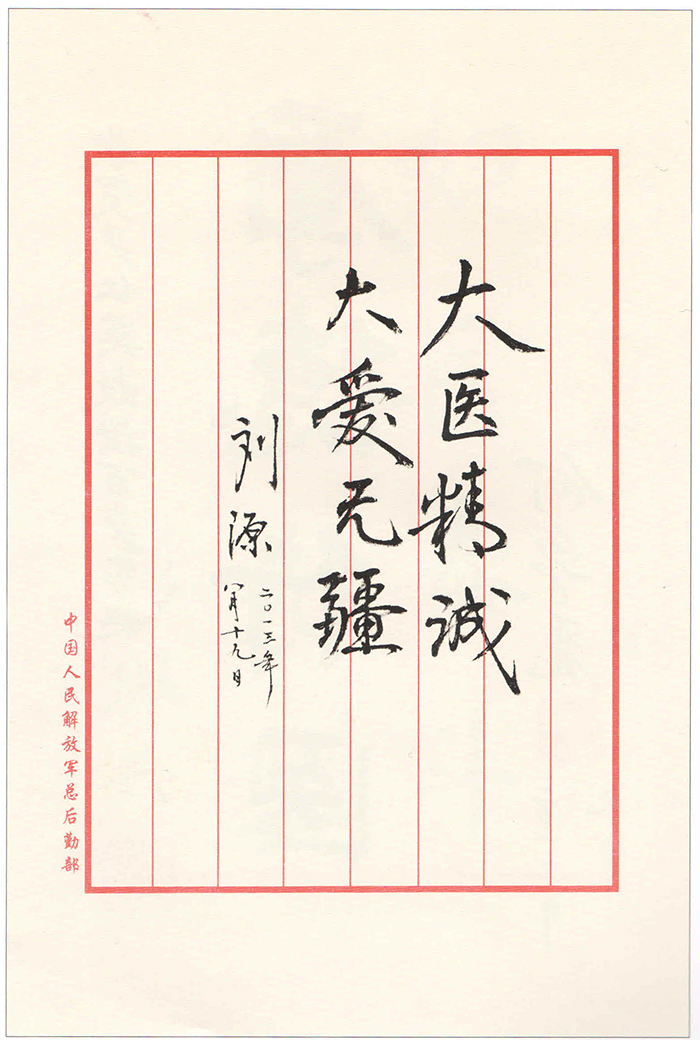 大医精诚
大爱无疆
刘源
二〇一三年
八月十九日
中国人民解放军总后勤部